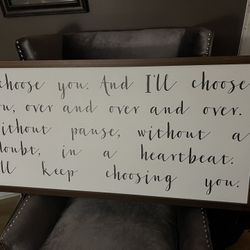 choose you. And I'll choose
you, over and over and over.
without pause, without a
doubt, in a heartbeat.
I'll keep choosing you.